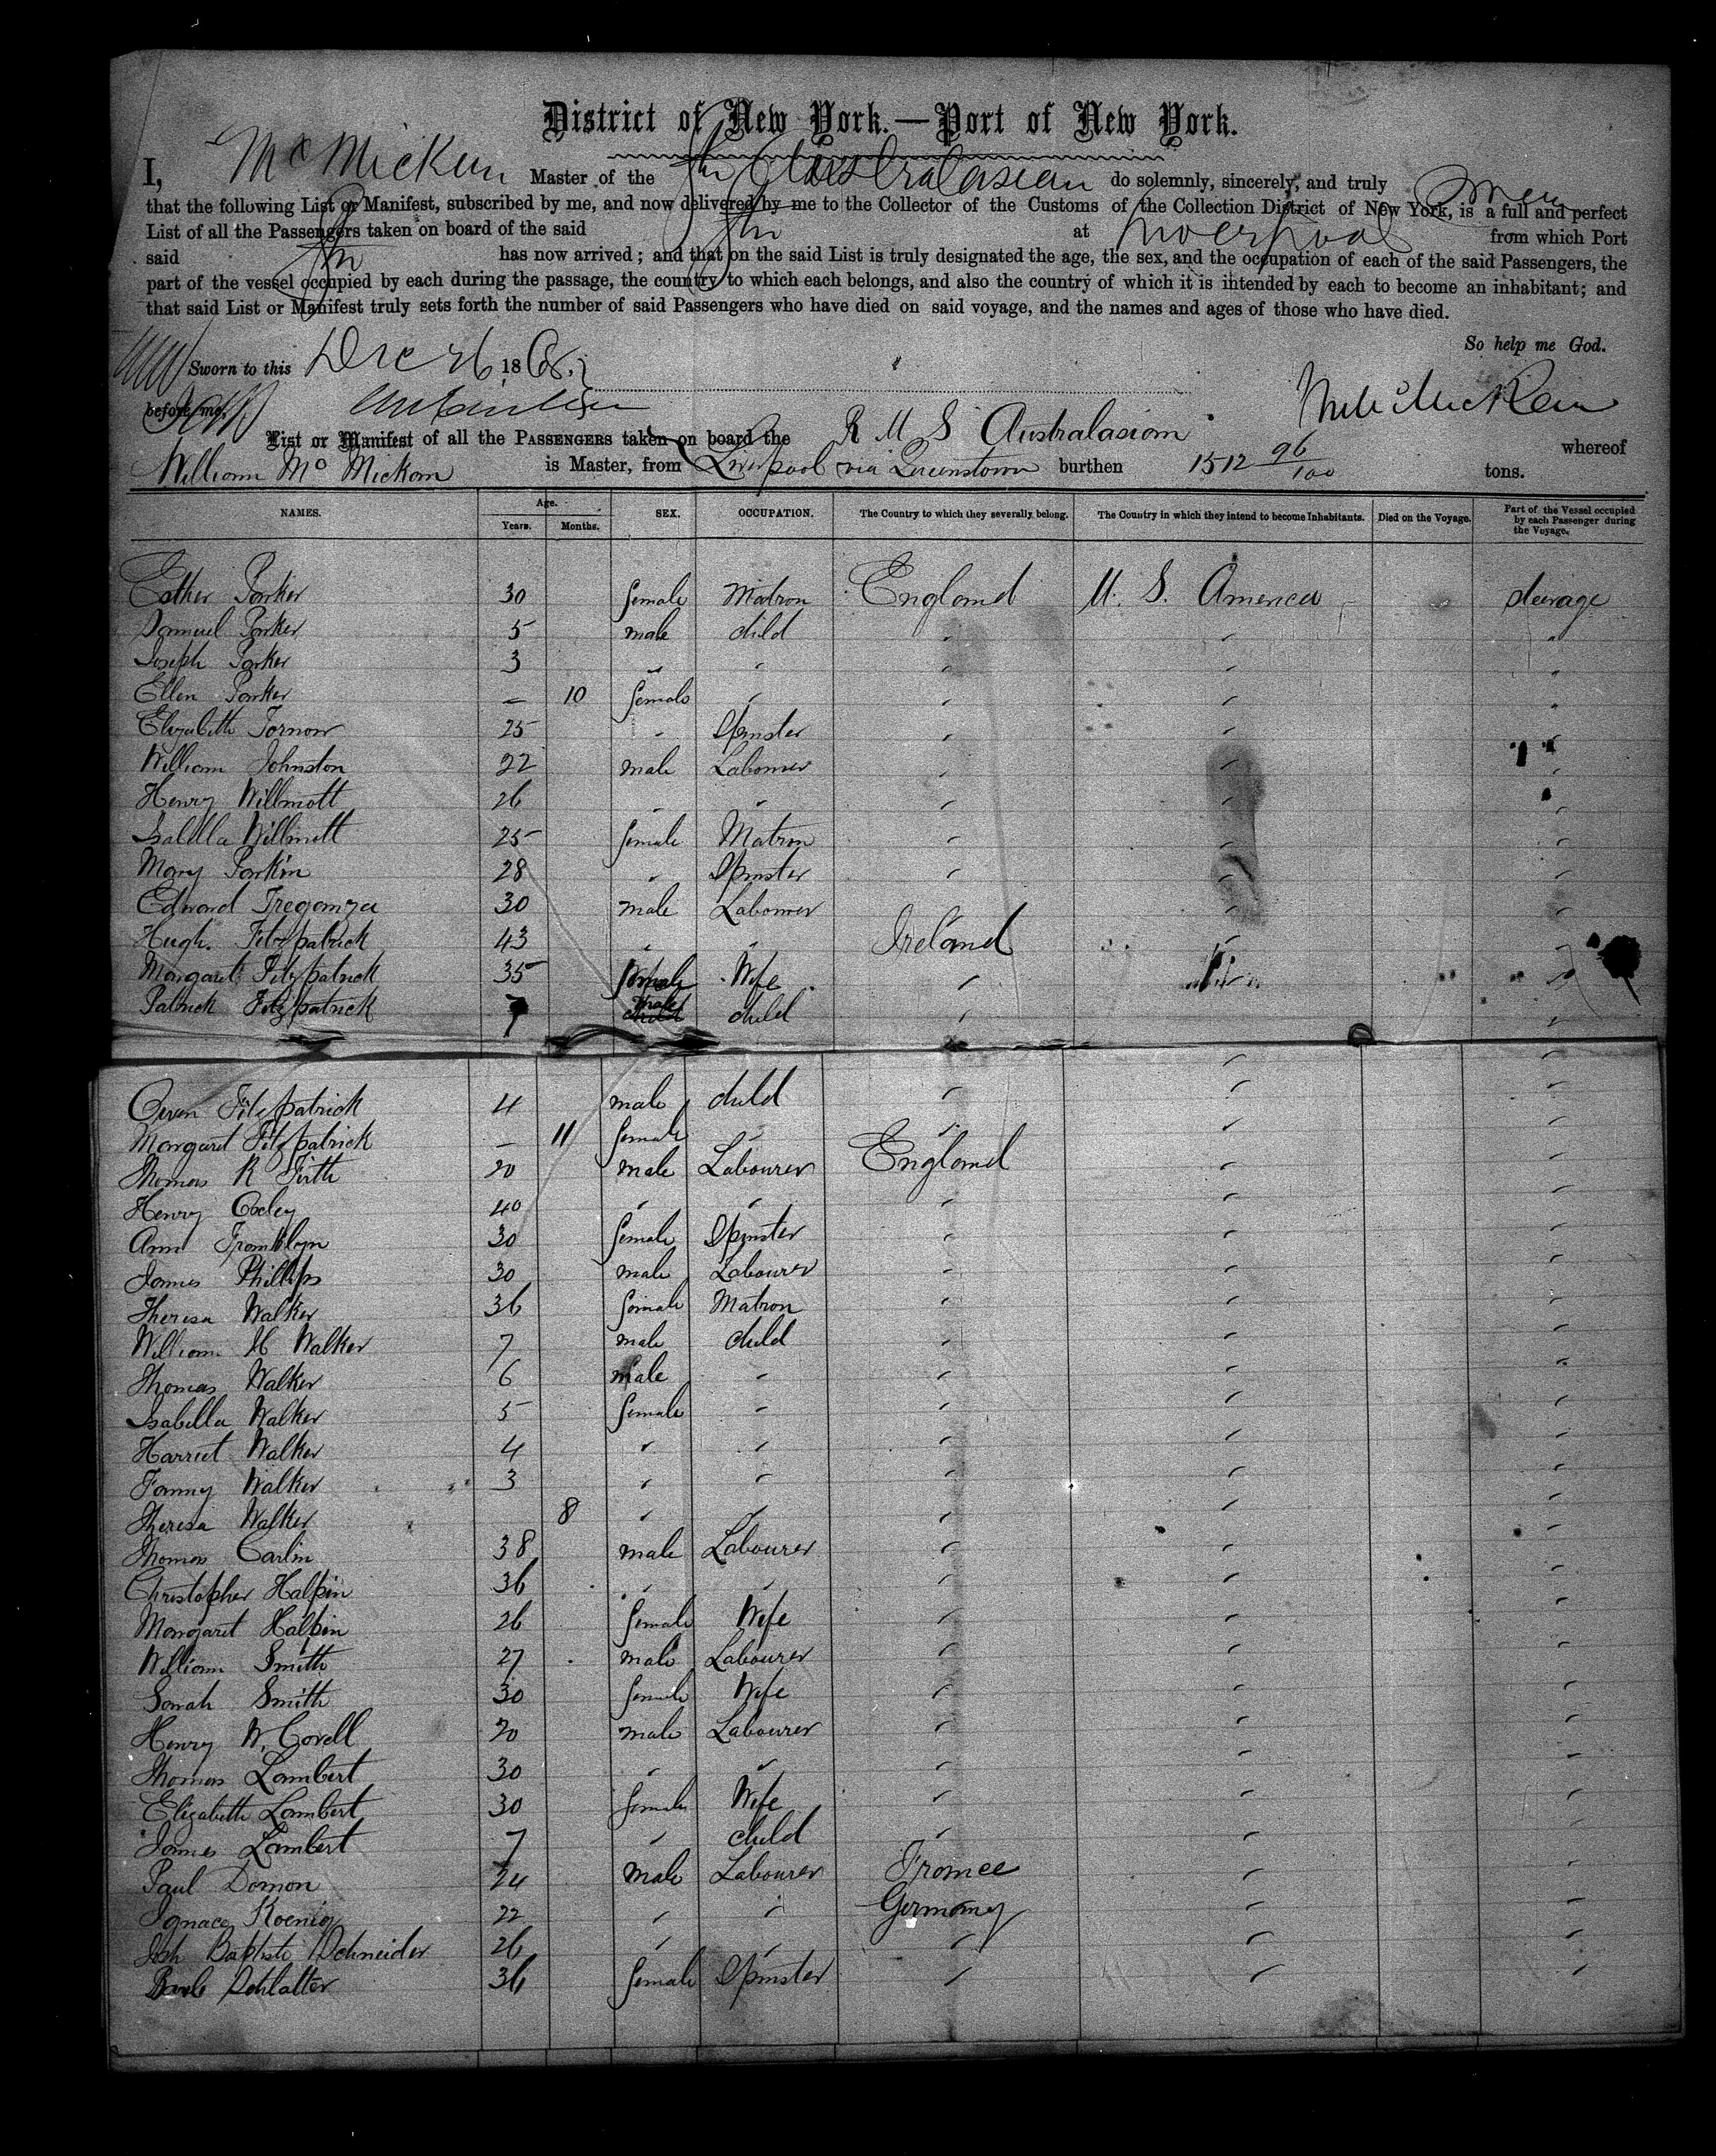 District of New York.—Port of New York.
I, McMicken Master of the Str Australasian do solemnly, sincerely, and truly swear
that the following List or Manifest, subscribed by me, and now delivered by me to the Collector of the Customs of the Collection District of New York, is a full and perfect
List of all the Passengers taken on board of the said Str at Liverpool from which Port
said Str has now arrived; and that on the said List is truly designated the age, the sex, and the occupation of each of the said Passengers, the
part of the vessel occupied by each during the passage, the country to which each belongs, and also the country of which it is intended by each to become an inhabitant; and
that said List or Manifest truly sets forth the number of said Passengers who have died on said voyage, and the names and ages of those who have died.
So help me God.
Sworn to this Dec 26 1868
before me,
List or Manifest of all the PASSENGERS taken on board the R M S Australasian whereof
William Mc Mickan is Master, from Liverpool via Queenstown burthen 1512 96/100 tons.
NAMES. Age. Years. Months. SEX. OCCUPATION. The Country to which they severally belong. The Country in which they intend to become Inhabitants. Died on the Voyage. Part of the Vessel occupied by each Passenger during the Voyage.
Esther Parker 30 female Matron England U. S. America steerage
Samuel Parker 5 male child " " "
Joseph Parker 3 " " " " "
Ellen Parker – 10 female " " " "
Elizabeth 25 " Spinster " " "
William Johnston 22 male Labourer " " "
Henry Willmott 26 " " " " "
Isabella Willmott 25 female Matron " " "
Mary Parkin 28 " Spinster " " "
Edward Tregonza 30 male Labourer " "
Hugh Fitzpatrick 43 " " Ireland " "
Margaret Fitzpatrick 35 female Wife " " "
Patrick Fitzpatrick 7 male child " "
Owen Fitzpatrick 4 male child " " "
Margaret Fitzpatrick – 11 female " " " "
Thomas R Firth 20 male Labourer England " "
Henry 40 " " " " "
Ann 30 female Spinster " " "
James Phillips 30 male Labourer " " "
Theresa Walker 36 female Matron " " "
William H Walker 7 male child " " "
Thomas Walker 6 male " " " "
Isabella Walker 5 female " " " "
Harriet Walker 4 " " " " "
Fanny Walker 3 " " " " "
Theresa Walker 8 " " " " "
Thomas Carlin 38 male Labourer " " "
Christopher Halpin 36 " " " " "
Margaret Halpin 26 female Wife " " "
William Smith 27 male Labourer " " "
Sarah Smith 30 female Wife " " "
Henry W. Covell 20 male Labourer " " "
Thomas Lambert 30 " " " " "
Elizabeth Lambert 30 female Wife " " "
James Lambert 7 " child " " "
Paul Domon 24 male Labourer France " "
Ignace Koenig 22 " " Germany " "
Josh Baptiste Schneider 26 " " " " "
Schlatter 36 female Spinster " " "